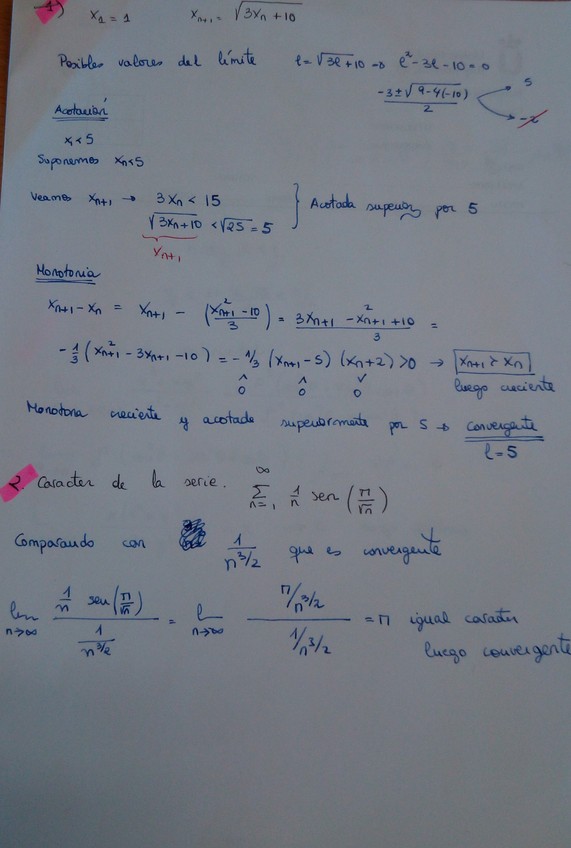 1) x₁ = 1 xₙ₊₁ = √(3xₙ + 10)
Posibles valores del límite l = √(3l + 10) → l² - 3l - 10 = 0
(-3 ± √(9 - 4(-10)))/2 → 5
→ -2
Acotación
x₁ < 5
Suponemos xₙ < 5
Veamos xₙ₊₁ → 3xₙ < 15
√(3xₙ + 10) < √25 = 5 } Acotada superior por 5
xₙ₊₁
Monotonía
xₙ₊₁ - xₙ = xₙ₊₁ - ((x²ₙ₊₁ - 10)/3) = (3xₙ₊₁ - x²ₙ₊₁ + 10)/3 =
-1/3 (x²ₙ₊₁ - 3xₙ₊₁ - 10) = -1/3 (xₙ₊₁ - 5) (xₙ + 2) > 0 → xₙ₊₁ > xₙ
∧ ∧ ∨
0 0 0
luego creciente
Monotona creciente y acotada superiormente por 5 → convergente
l = 5
2. Caracter de la serie. ∑ₙ₌₁^∞ 1/n sen (π/√n)
Comparando con 1/n^(3/2) que es convergente
lim n→∞ (1/n sen(π/√n))/(1/n^(3/2)) = l n→∞ (π/n^(3/2))/(1/n^(3/2)) = π igual caracter
luego convergente